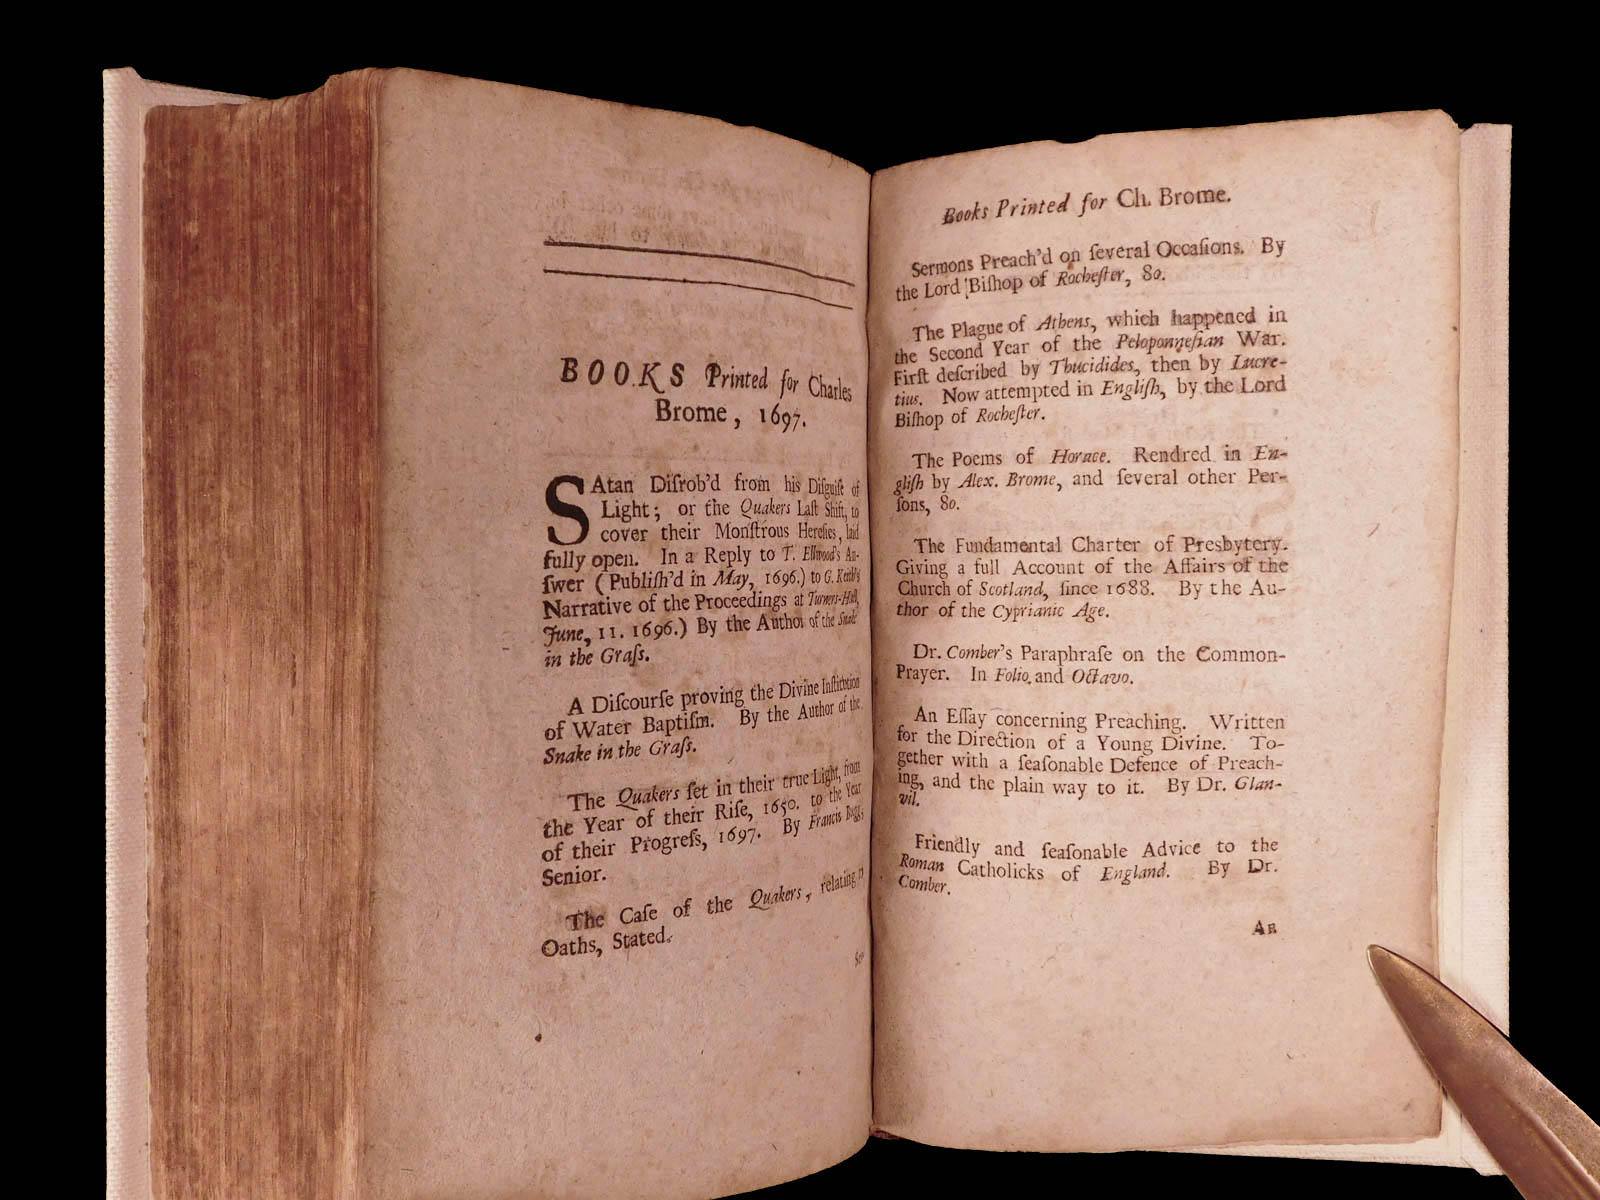 BOOKS Printed for Charles
Brome, 1697.
SAtan Diſrob'd from his Diſguiſe of
Light; or the Quakers Laſt Shift, to
cover their Monſtrous Hereſies, laid
fully open. In a Reply to T. Ellwood's An-
ſwer (Publiſh'd in May, 1696.) to G. Keith's
Narrative of the Proceedings at Turners-Hall,
June, 11. 1696.) By the Author of the Snake
in the Graſs.
A Diſcourſe proving the Divine Inſtitution
of Water Baptiſm. By the Author of the
Snake in the Graſs.
The Quakers ſet in their true Light, from
the Year of their Riſe, 1650. to the Year
of their Progreſs, 1697. By Francis Bugg,
Senior.
The Caſe of the Quakers, relating to
Oaths, Stated.
Books Printed for Ch. Brome.
Sermons Preach'd on ſeveral Occaſions. By
the Lord Biſhop of Rocheſter, 80.
The Plague of Athens, which happened in
the Second Year of the Peloponneſian War.
Firſt deſcribed by Thucidides, then by Lucre-
tius. Now attempted in Engliſh, by the Lord
Biſhop of Rocheſter.
The Poems of Horace. Rendred in En-
gliſh by Alex. Brome, and ſeveral other Per-
ſons, 80.
The Fundamental Charter of Presbytery.
Giving a full Account of the Affairs of the
Church of Scotland, ſince 1688. By the Au-
thor of the Cyprianic Age.
Dr. Comber's Paraphraſe on the Common-
Prayer. In Folio and Octavo.
An Eſſay concerning Preaching. Written
for the Direction of a Young Divine. To-
gether with a ſeaſonable Defence of Preach-
ing, and the plain way to it. By Dr. Glan-
vil.
Friendly and ſeaſonable Advice to the
Roman Catholicks of England. By Dr.
Comber.
An